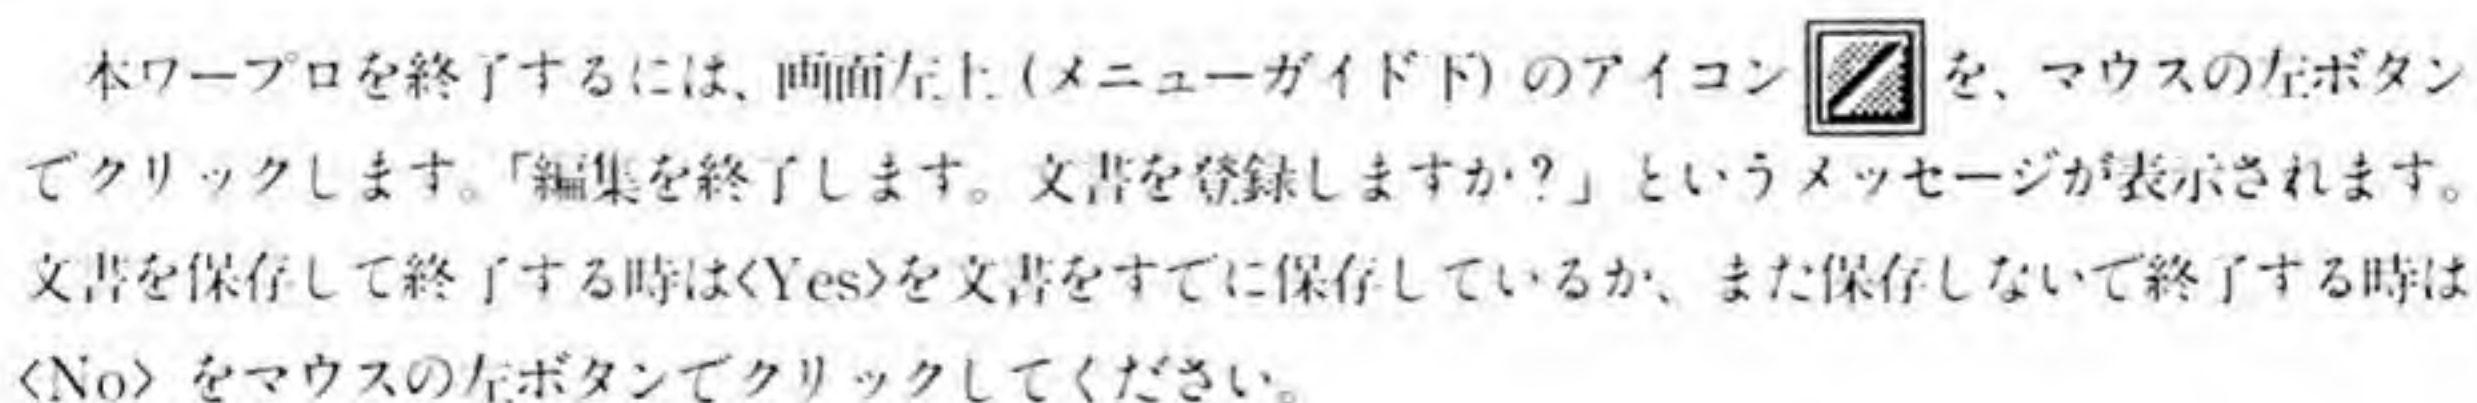 本ワープロを終了するには、画面左上(メニューガイド下)のアイコンを、マウスの左ボタン
でクリックします。「編集を終了します。文書を登録しますか?」というメッセージが表示されます。
文書を保存して終了する時は<Yes>を文書をすでに保存しているか、また保存しないで終了する時は
<No>をマウスの左ボタンでクリックしてください。